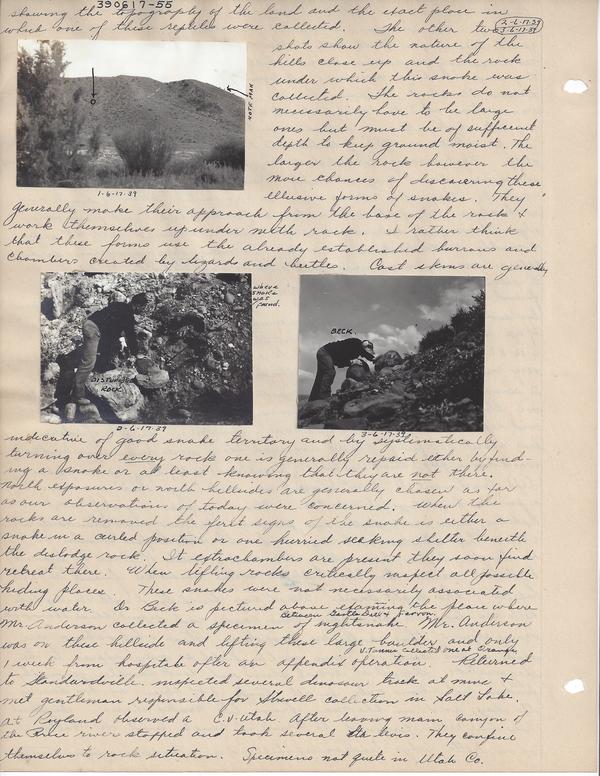 390617-55
showing the topography of the land and the exact place in
which one of these reptiles were collected. The other two
2-6-17-39
3-6-17-39
shots show the nature of the
hills close up and the rock
under which this snake was
collected. The rocks do not
necissarily have to be large
ones but must be of sufficient
depth to keep ground moist. The
larger the rock however the
more chances of discovering these
illusive forms of snakes. They
NOTE MAN
1-6-17-39
generally make their approach from the base of the rock &
work themselves up under neith rock. I rather think
that these forms use the already established burrows and
chambers created by lizards and beetles. Cast skins are generally
WHERE
SNAKE
WAS
FOUND.
DISTURBED
ROCK
BECK.
2-6-17-39
3-6-17-39
indicative of good snake territory and by systematically
turning over every rock one is generally repaid either by find-
ing a snake or at least knowing that they are not there.
North exposures or north hillsides are generally chosen as far
as our observations of today were concerned. When the
rocks are removed the first signs of the snake is either a
snake in a curled position or one hurried seaking shelter beneith
the dislodge rock. If extra chambers are present they soon find
retreat there. When lifting rocks critically inspect all possible
hiding places. These snakes were not necessarily associated
with water. Dr Beck is pictured above examing the place where
Between
Mr. Anderson collected a specimen of nightsnake. Mr. Anderson
was on these hillside and lifting these large boulder and only
V. Tanner collected one at
1 week from hospital after an appendix operation. Returned
to Standardville. inspected several dinosaur track at mine &
met gentleman responsible for collection in Salt Lake.
at Royland observed a C.V. Utah after leaving main canyon of
the Price river stopped and took several. They confine
themselves to rock situation. Specimens not quite in Utah Co.